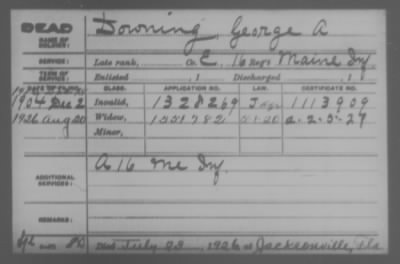 DEAD
NAME OF SOLDIER:
Downing, George A
SERVICE:
Late rank, Co. C, 16 Reg't Maine Inf
TERM OF SERVICE:
Enlisted , 1 Discharged , 1
CLASS. APPLICATION NO. LAW. CERTIFICATE NO.
1904 Dec 2 Invalid, 1328269 1113909
1926 Aug 20 Widow, 1551782 a-2-5-27
Minor,
ADDITIONAL SERVICES:
A 16 Me Inf.
REMARKS:
Died July 23, 1926 at Jacksonville, Fla